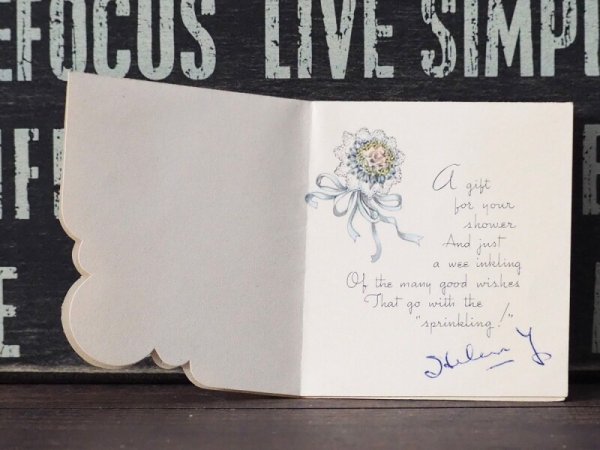 EFOCUS LIVE SIMPL
A gift
for your
shower
And just
a wee inkling
Of the many good wishes
That go with the
"sprinkling!"
Helen Y